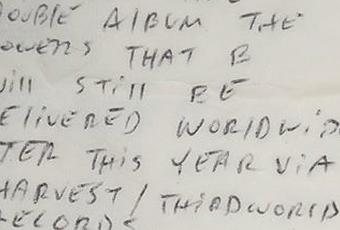 DOUBLE AlBUM THE
POWERS THAT B
Will STill BE
DEliVERED WORlDWiD
TER THiS YEAR ViA
HARVEST / THiRDWORlD
RECORDS